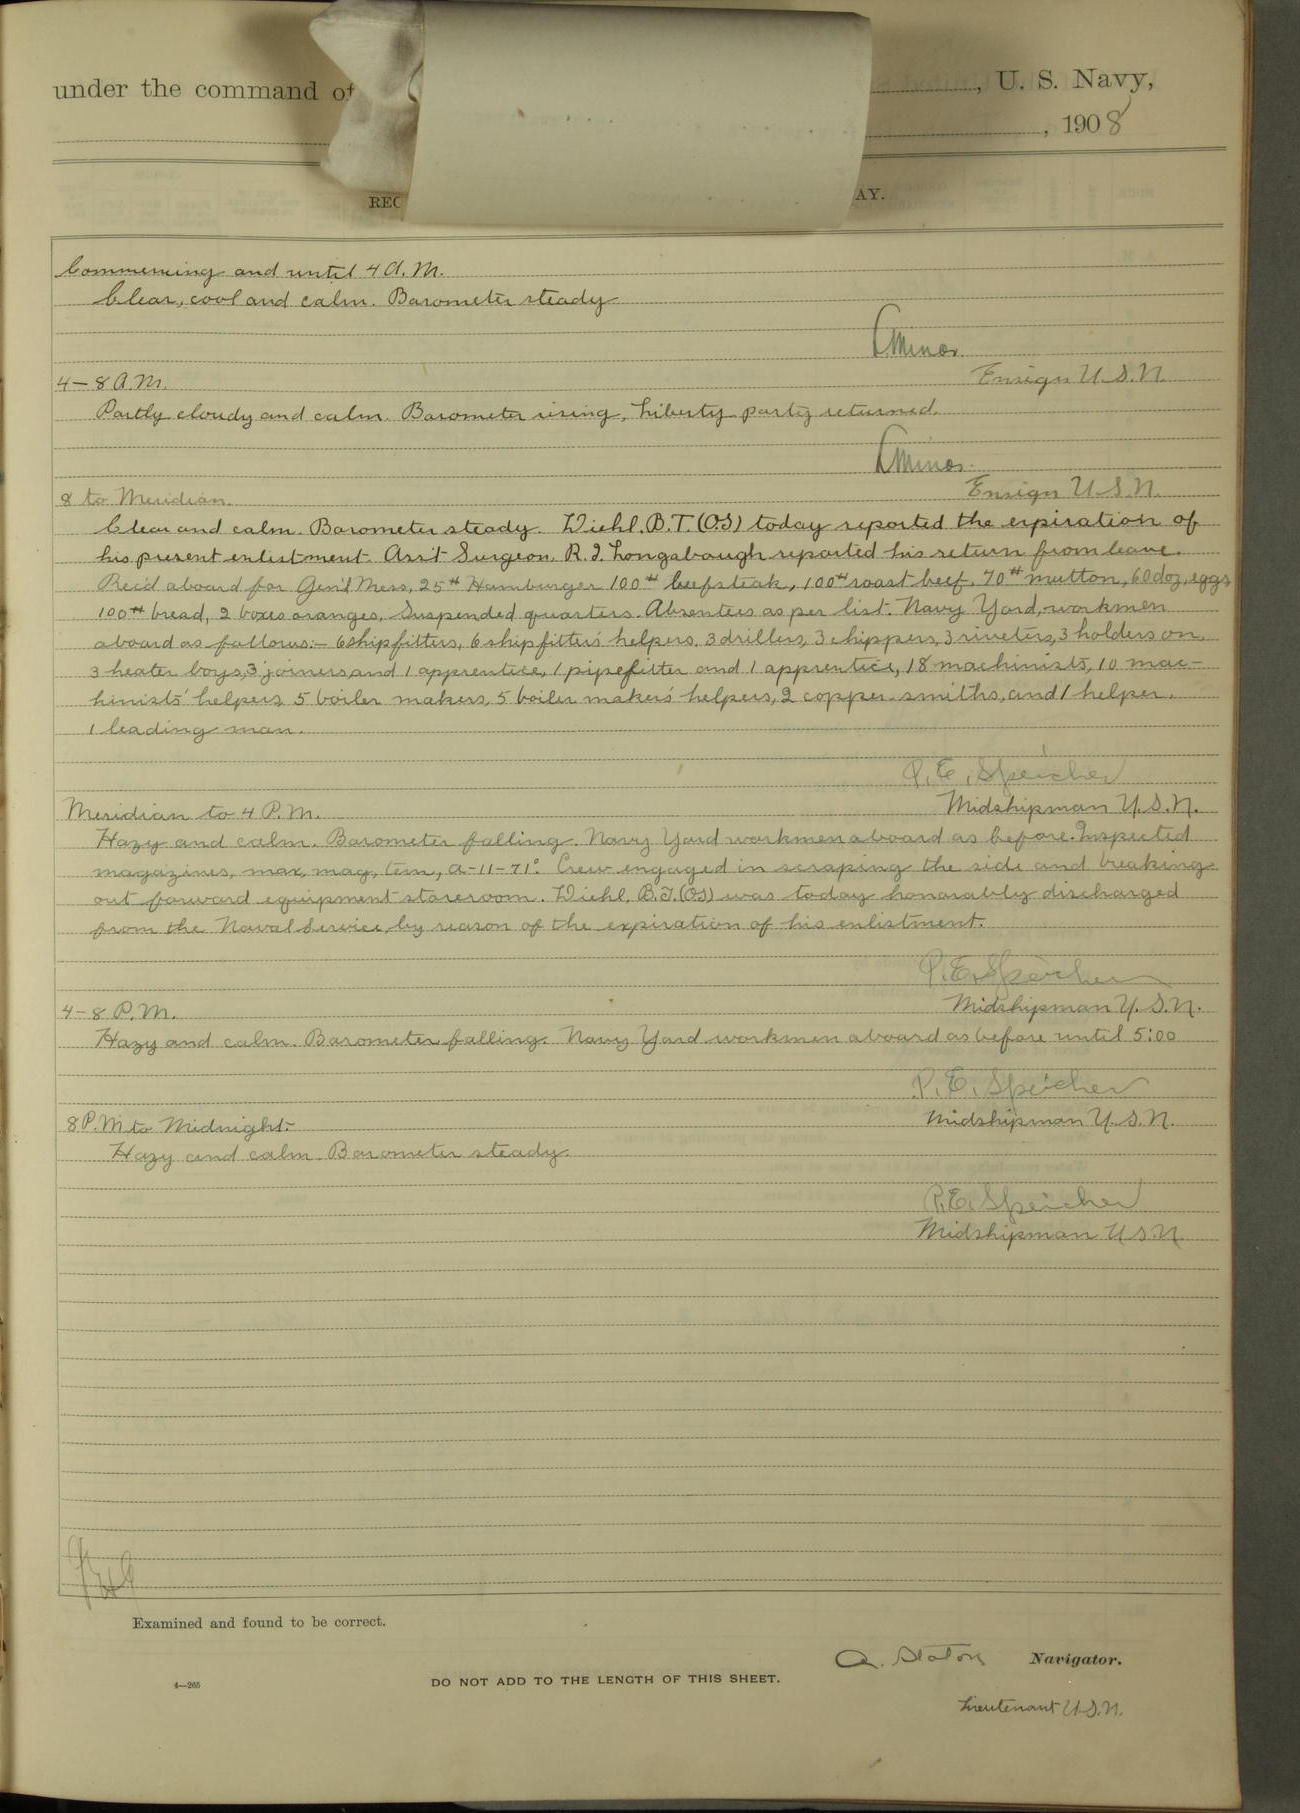 under the command of , U. S. Navy,
, 1908
REC AY.
Commencing and until 4 A.M.
Clear, cool and calm. Barometer steady
L Minor
Ensign U.S.N.
4-8 A.M.
Partly cloudy and calm. Barometer rising, Liberty party returned.
L Minor
Ensign U.S.N.
8 to Meridian.
Clear and calm. Barometer steady. Diehl. B.T. (O.S) today reported the expiration of
his present enlistment. Ass't Surgeon, R. I. Longabaugh reported his return from leave.
Rec'd aboard for Gen'l Mess, 25# Hamburger 100# beefsteak, 100# roast beef, 70# mutton, 60 doz, eggs
100# bread, 2 boxes oranges, Suspended quarters. Absentees as per list. Navy Yard, workmen
aboard as follows:- 6 shipfitters, 6 shipfitters' helpers, 3 drillers, 3 chippers, 3 riveters, 3 holders on,
3 heater boys, 3 joiners, and 1 apprentice, 1 pipefitter and 1 apprentice, 18 machinists, 10 mac-
hinists' helpers 5 boiler makers, 5 boiler makers' helpers, 2 copper smiths, and 1 helper.
1 leading man.
P. E. Speicher
Midshipman U.S.N.
Meridian to 4 P.M.
Hazy and calm. Barometer falling. Navy Yard workmen aboard as before. Inspected
magazines, max, mag, tem, A-11-71°. Crew engaged in scraping the side and breaking
out forward equipment storeroom. Diehl, B.T. (OS) was today honorably discharged
from the Naval Service by reason of the expiration of his enlistment.
P. E. Speicher
Midshipman U.S.N.
4-8 P.M.
Hazy and calm. Barometer falling. Navy Yard workmen aboard as before until 5:00
P. E. Speicher
Midshipman U.S.N.
8 P.M to Midnight:-
Hazy and calm. Barometer steady.
P. E. Speicher
Midshipman U.S.N.
Examined and found to be correct.
A. Staton Navigator.
4—265 DO NOT ADD TO THE LENGTH OF THIS SHEET.
Lieutenant U.S.N.